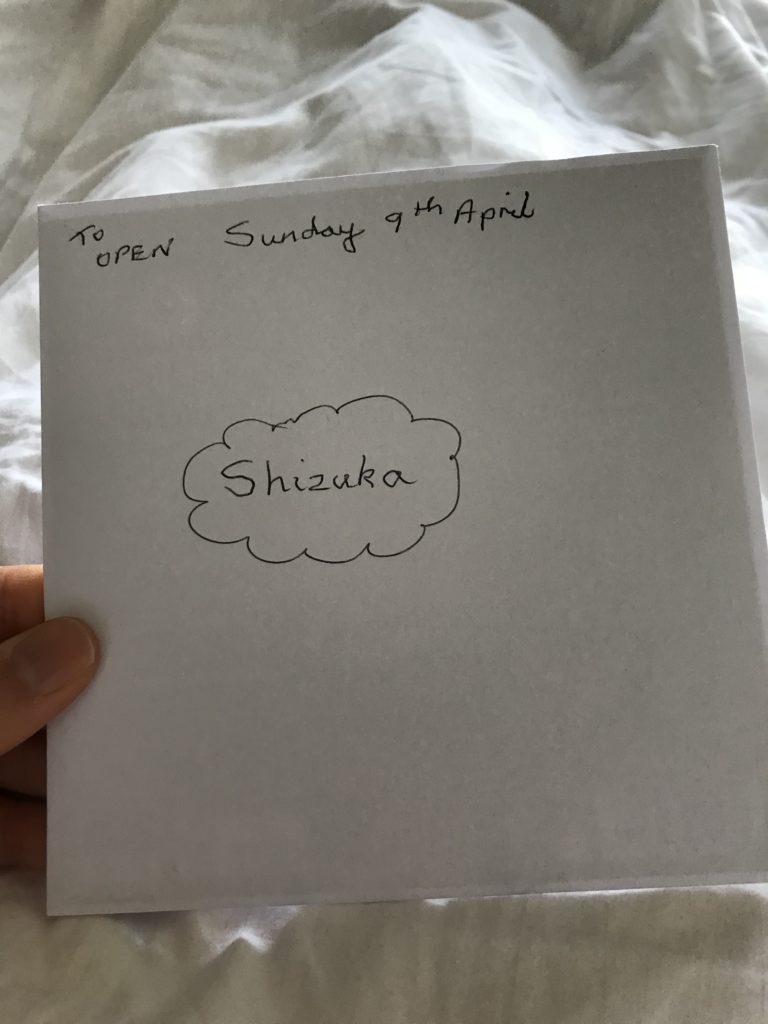 To OPEN Sunday 9th April
Shizuka